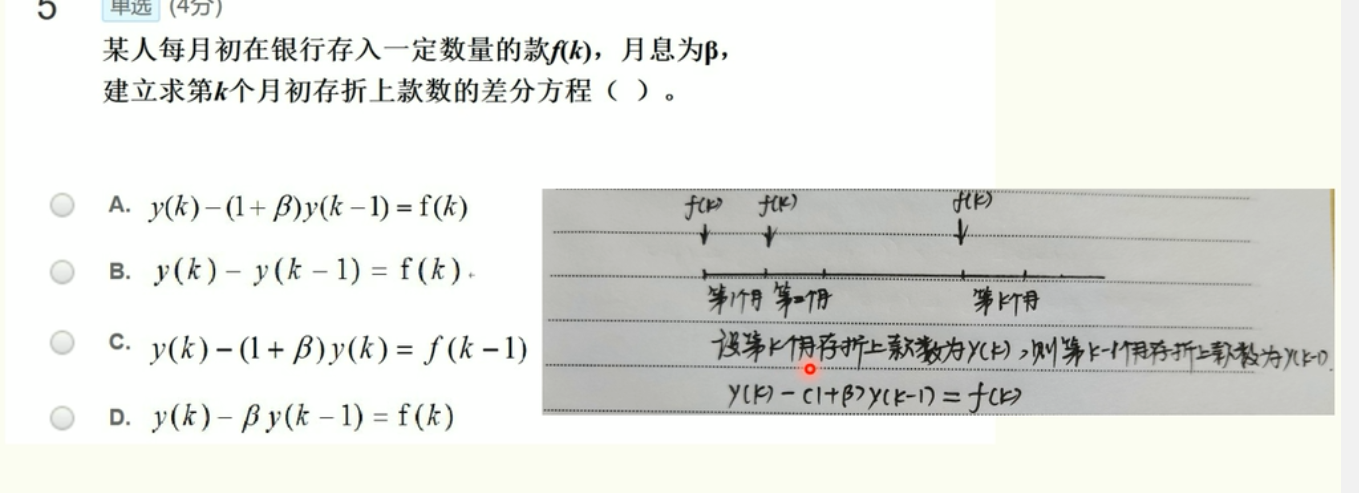 5 单选 (4分)
某人每月初在银行存入一定数量的款f(k)，月息为β，
建立求第k个月初存折上款数的差分方程（ ）。
A. y(k)−(1+β)y(k−1)=f(k)
B. y(k)−y(k−1)=f(k).
C. y(k)−(1+β)y(k)=f(k−1)
D. y(k)−βy(k−1)=f(k)
f(k) f(k) f(k)
第1个月 第二个月 第k个月
设第k个月存折上款数为y(k)，则第k-1个月存折上款数为y(k-1).
y(k)-(1+β)y(k-1)=f(k)